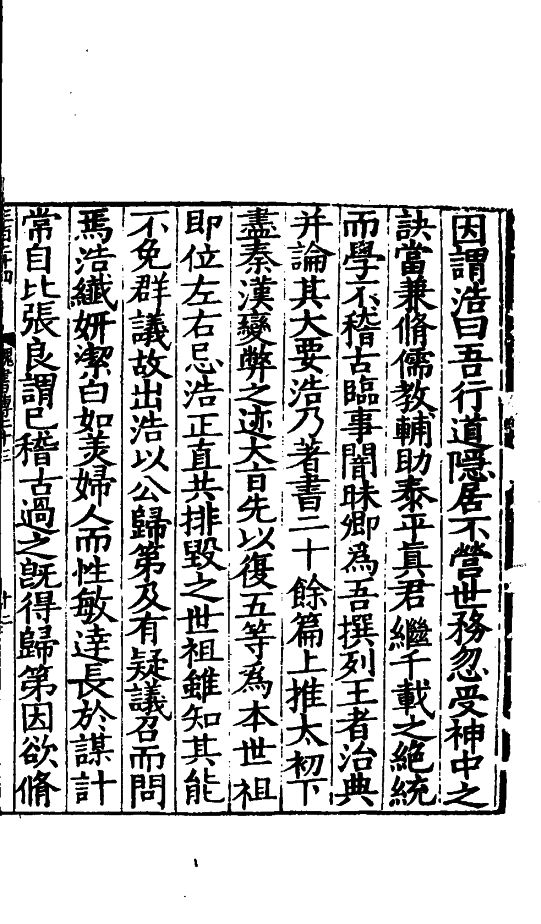 因謂浩曰吾行道隱居不營世務忽受神中之
訣當兼脩儒教輔助泰平真君繼千載之絶統
而學不稽古臨事闇昧卿爲吾撰列王者治典
并論其大要浩乃著書二十餘篇上推太初下
盡秦漢變弊之迹大旨先以復五等爲本世祖
即位左右忌浩正直共排毀之世祖雖知其能
不免群議故出浩以公歸第及有疑議召而問
焉浩纖妍潔白如美婦人而性敏達長於謀計
常自比張良謂己稽古過之旣得歸第因欲脩
魏書傳二十三